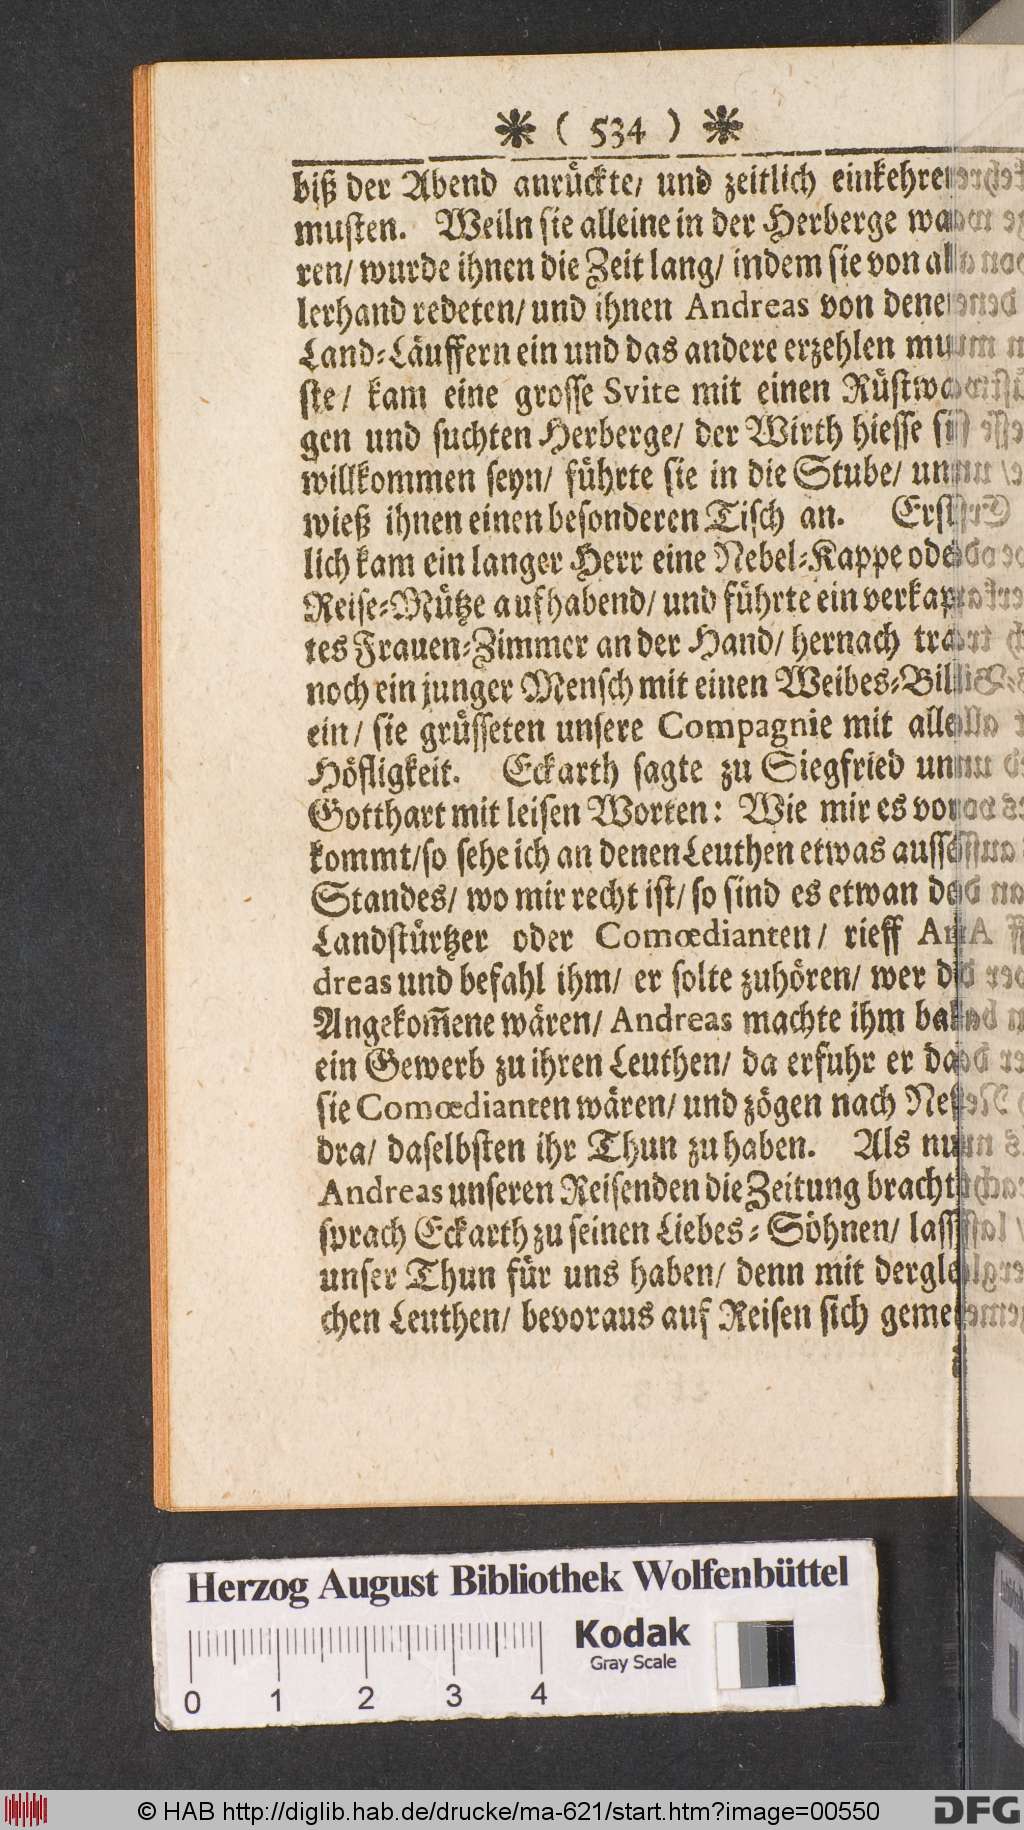 * ( 534 ) *
biß der Abend anrückte/ und zeitlich einkehren
musten. Weiln sie alleine in der Herberge wa-
ren/ wurde ihnen die Zeit lang/ indem sie von al-
lerhand redeten/ und ihnen Andreas von denen
Land-Läuffern ein und das andere erzehlen mu-
ste/ kam eine grosse Svite mit einen Rüstwa-
gen und suchten Herberge/ der Wirth hiesse sie
willkommen seyn/ führte sie in die Stube/ und
wieß ihnen einen besonderen Tisch an. Erst-
lich kam ein langer Herr eine Nebel-Kappe oder
Reise-Mütze aufhabend/ und führte ein verkap-
tes Frauen-Zimmer an der Hand/ hernach trat
noch ein junger Mensch mit einen Weibes-Bild
ein/ sie grüsseten unsere Compagnie mit aller
Höfligkeit. Eckarth sagte zu Siegfried und
Gotthart mit leisen Worten: Wie mir es vor-
kommt/so sehe ich an denen Leuthen etwas aussers
Standes/ wo mir recht ist/ so sind es etwan der
Landstürtzer oder Comœdianten/ rieff An-
dreas und befahl ihm/ er solte zuhören/ wer die
Angekom̃ene wären/ Andreas machte ihm bald
ein Gewerb zu ihren Leuthen/ da erfuhr er daß
sie Comœdianten wären/ und zögen nach Nes-
dra/ daselbsten ihr Thun zu haben. Als nun
Andreas unseren Reisenden die Zeitung brachte
sprach Eckarth zu seinen Liebes-Söhnen/ lasst
unser Thun für uns haben/ denn mit derglei-
chen Leuthen/ bevoraus auf Reisen sich gemei-
Herzog August Bibliothek Wolfenbüttel
Kodak
Gray Scale
0 1 2 3 4
© HAB http://diglib.hab.de/drucke/ma-621/start.htm?image=00550
DFG